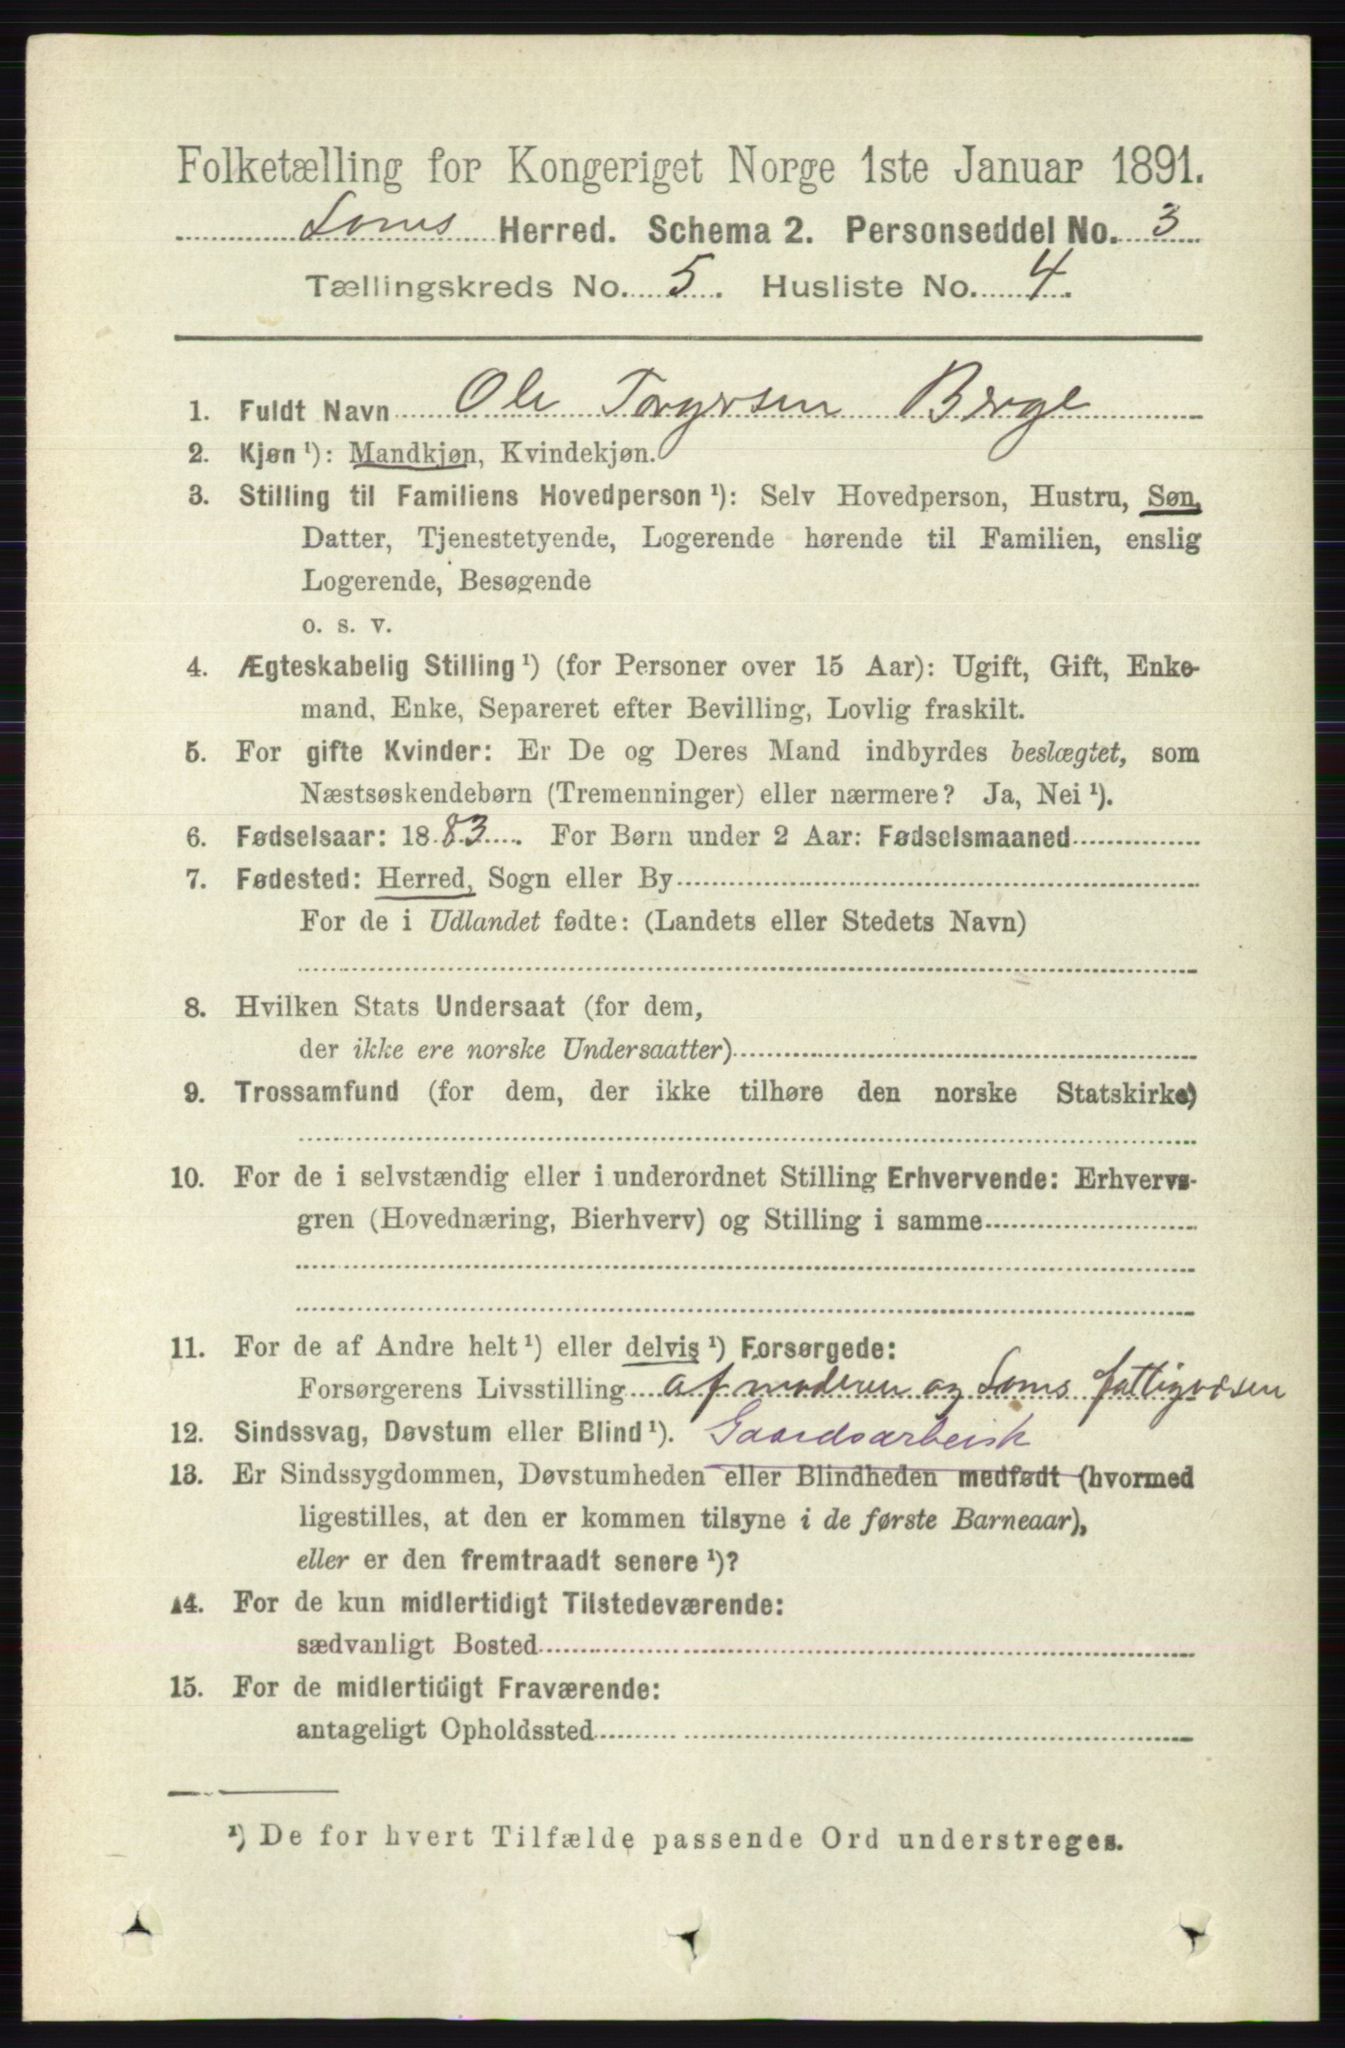 Folketælling for Kongeriget Norge 1ste Januar 1891.
Loms Herred. Schema 2. Personseddel No. 3
Tællingskreds No. 5. Husliste No. 4.
1. Fuldt Navn Ole Torgersen Berge
2. Kjøn ¹): Mandkjøn, Kvindekjøn.
3. Stilling til Familiens Hovedperson ¹): Selv Hovedperson, Hustru, Søn,
Datter, Tjenestetyende, Logerende hørende til Familien, enslig
Logerende, Besøgende
o. s. v.
4. Ægteskabelig Stilling ¹) (for Personer over 15 Aar): Ugift, Gift, Enke-
mand, Enke, Separeret efter Bevilling, Lovlig fraskilt.
5. For gifte Kvinder: Er De og Deres Mand indbyrdes beslægtet, som
Næstsøskendebørn (Tremenninger) eller nærmere? Ja, Nei ¹).
6. Fødselsaar: 1883. For Børn under 2 Aar: Fødselsmaaned
7. Fødested: Herred, Sogn eller By
For de i Udlandet fødte: (Landets eller Stedets Navn)
8. Hvilken Stats Undersaat (for dem,
der ikke ere norske Undersaatter)
9. Trossamfund (for dem, der ikke tilhøre den norske Statskirke)
10. For de i selvstændig eller i underordnet Stilling Erhvervende: Erhvervs-
gren (Hovednæring, Bierhverv) og Stilling i samme
11. For de af Andre helt ¹) eller delvis ¹) Forsørgede:
Forsørgerens Livsstilling af moderen og Loms fattigvæsen
12. Sindssvag, Døvstum eller Blind ¹). Gaardsarbeisk
13. Er Sindssygdommen, Døvstumheden eller Blindheden medfødt (hvormed
ligestilles, at den er kommen tilsyne i de første Barneaar),
eller er den fremtraadt senere ¹)?
14. For de kun midlertidigt Tilstedeværende:
sædvanligt Bosted
15. For de midlertidigt Fraværende:
antageligt Opholdssted
¹) De for hvert Tilfælde passende Ord understreges.